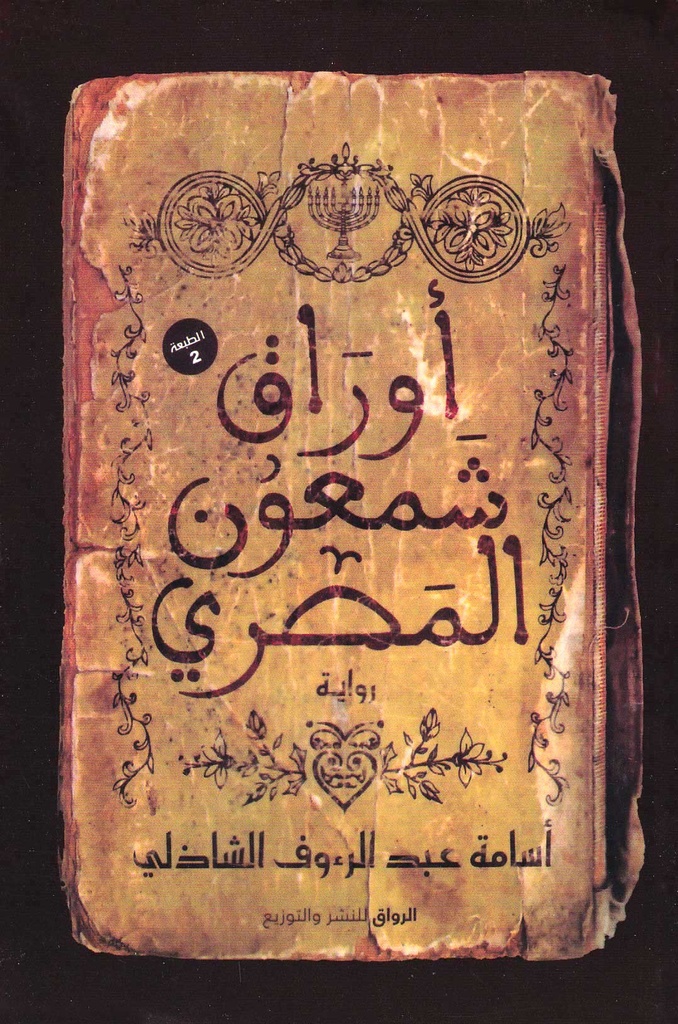 الطبعة
2
أوراق
شمعون
المصري
رواية
أسامة عبد الرءوف الشاذلي
الرواق للنشر والتوزيع